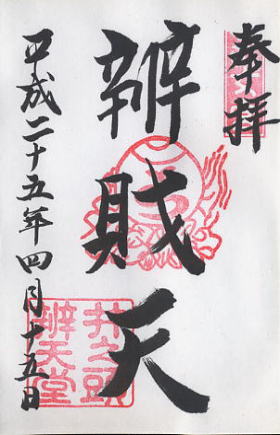 奉拝
辨財天
平成二十五年四月十五日
井之頭
辨天堂